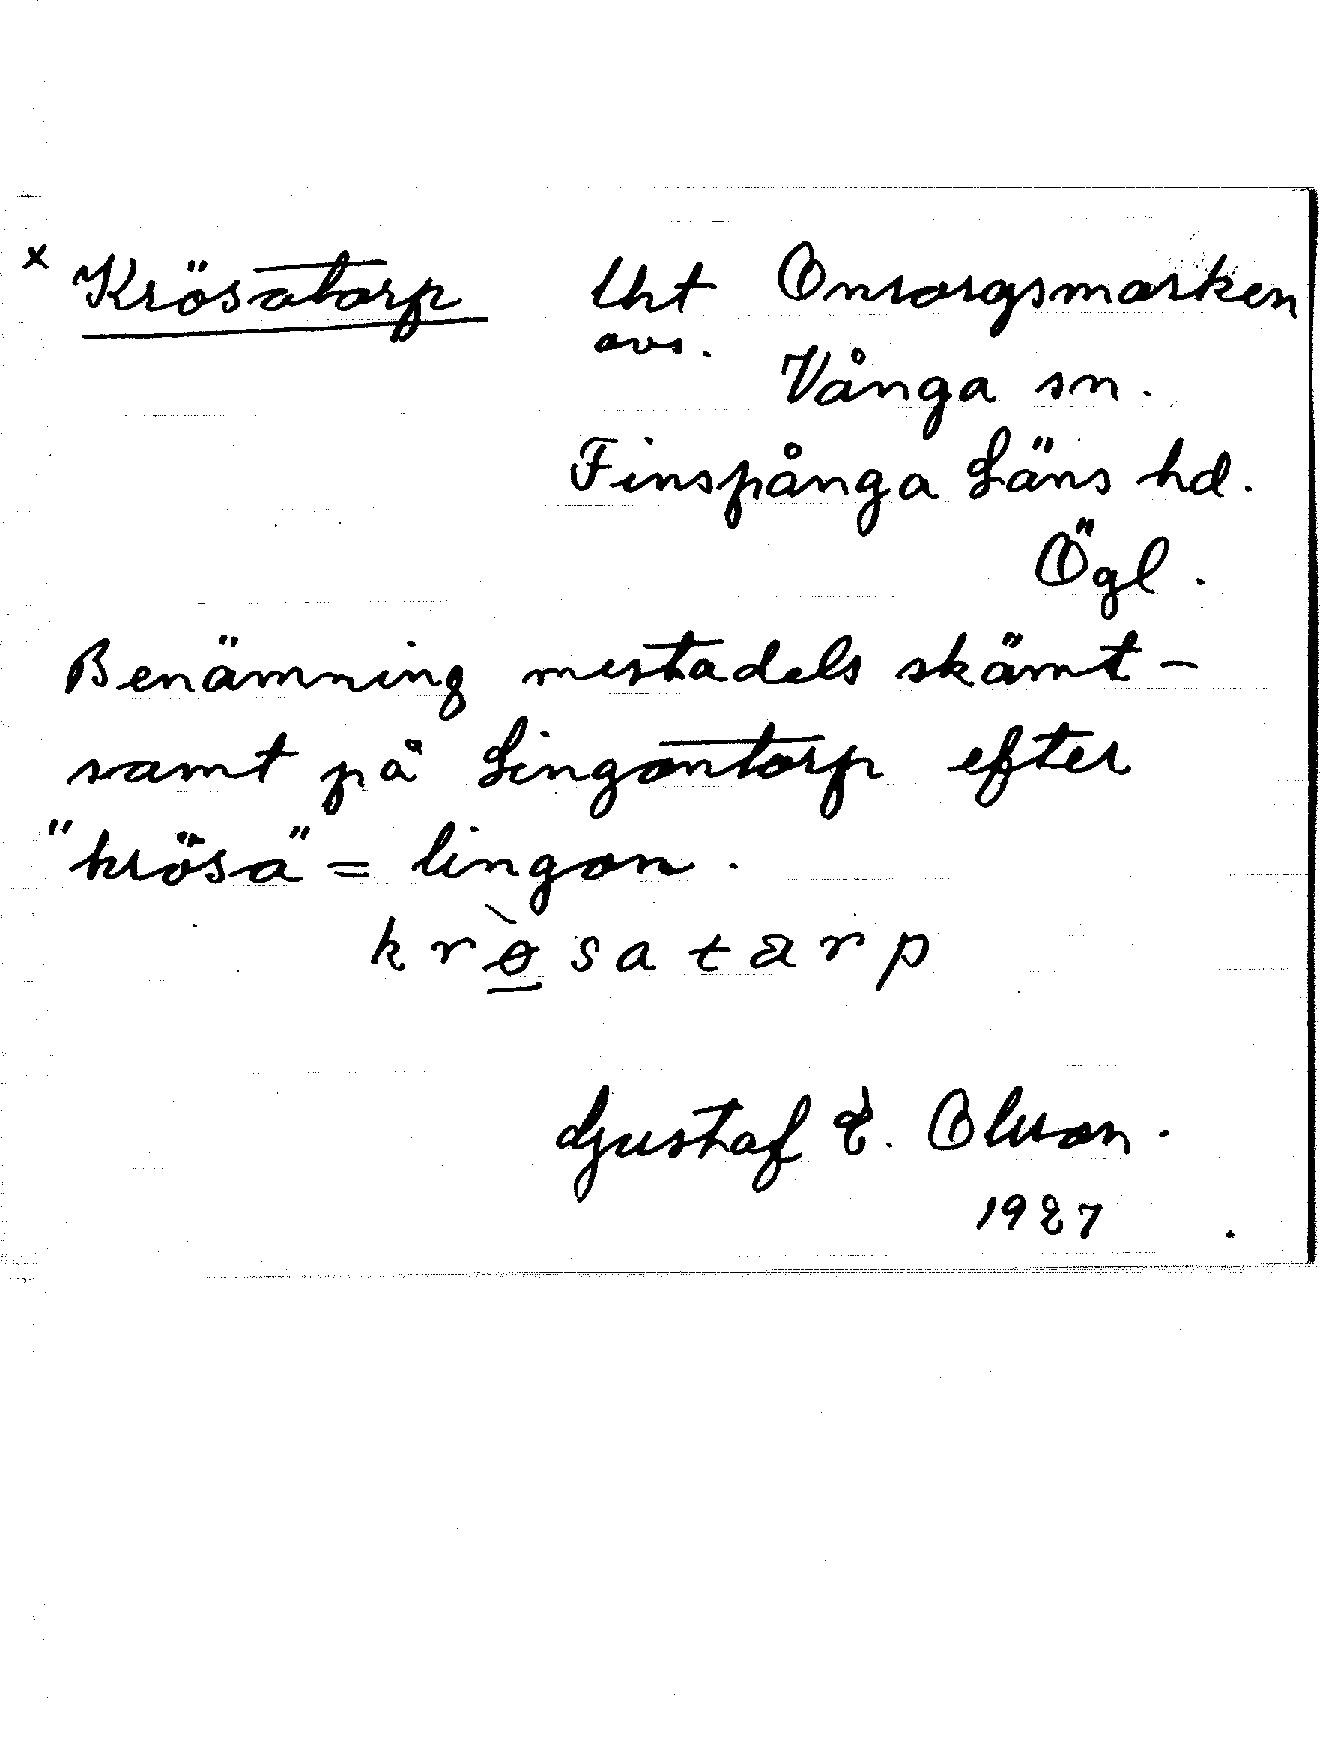 x Krösatorp lht Onsorgsmarken
avs.
Vånga sn.
Finspånga Läns hd.
Ögl.
Benämning mestadels skämt-
samt på Lingontorp efter
"krösa" = lingon.
krø̀satarp
Gustaf E. Olson.
1927